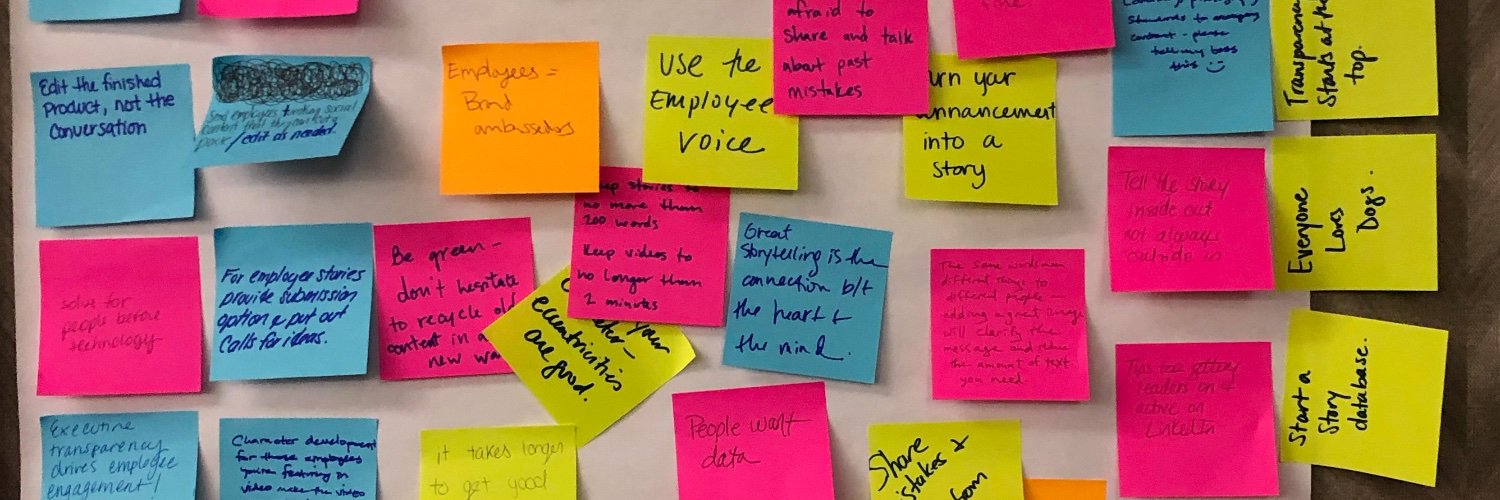 afraid to
share and talk
about past
mistakes
Transparency
starts at the
top.
Edit the finished
Product, not the
Conversation
/edit as needed.
Employees =
Brand
ambassadors
USE the
Employee
Voice
into a
Story
Tell the story
inside out
not always
outside in
Everyone
Loves
Dogs.
solve for
people before
technology
For employer stories
provide submission
option & put out
Calls for ideas.
Be green -
don't hesitate
to recycle old
content in a
new
no more than
200 words
Keep videos to
no longer than
2 minutes
your
eccentricities
are good.
Great
Storytelling is the
connection b/t
the heart &
the mind.
The same words mean
different things to
different people
adding a great image
will clarify the
message and
the amount of text
you need.
Tips
leaders on &
active on
LinkedIn
Start a
Story
database.
Executive
transparency
drives employee
engagement!
Character development
for those employees
you're featuring in
video make the video
it takes longer
to get good
People want
data
Share